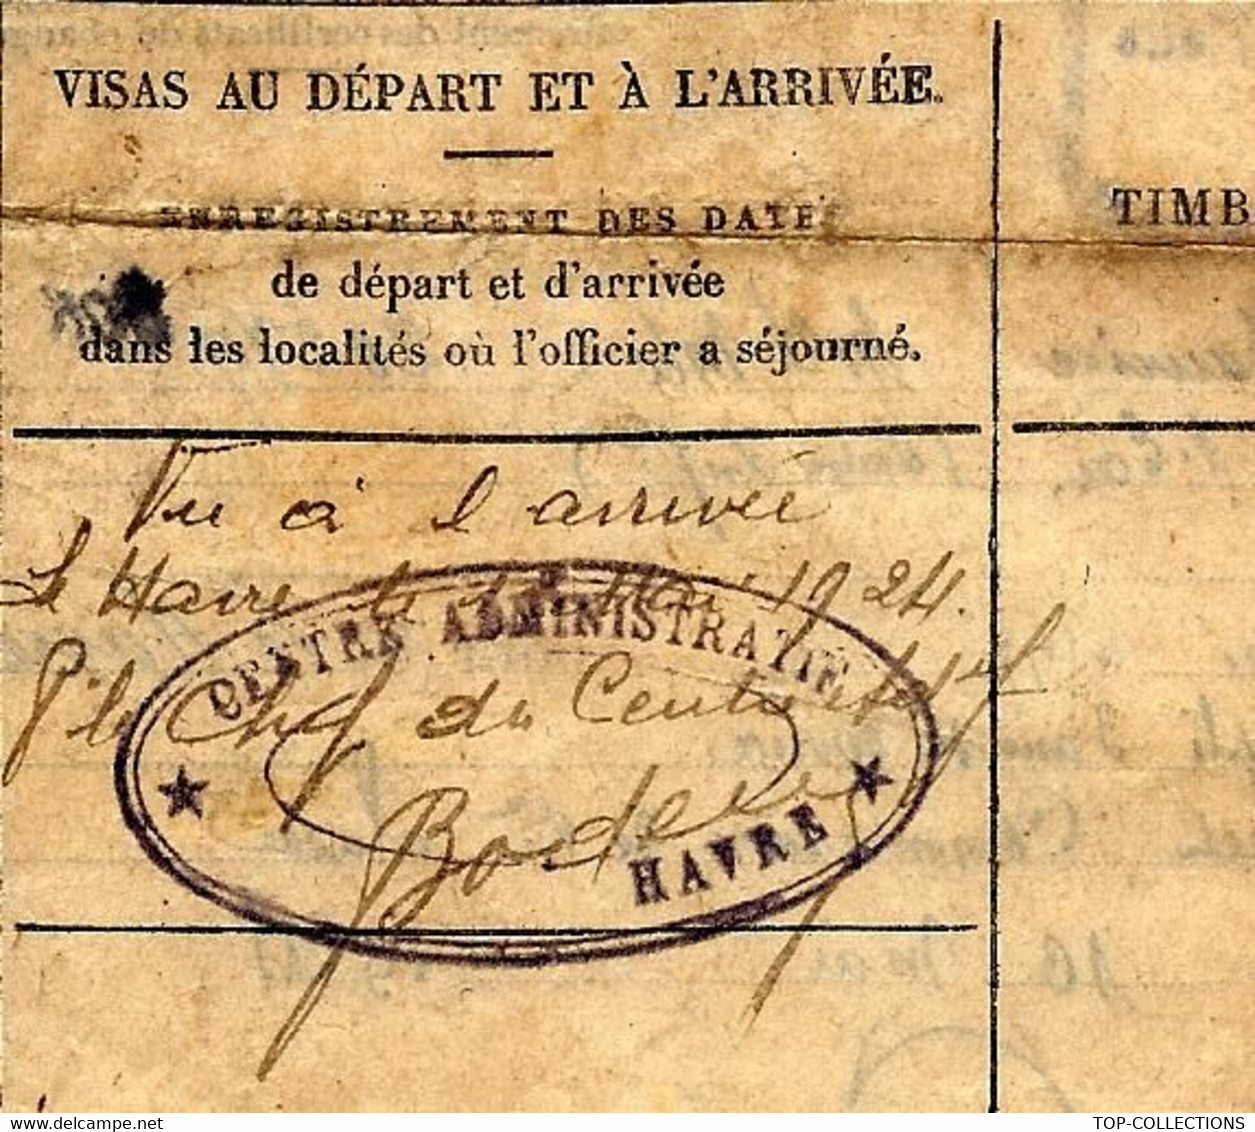 VISAS AU DÉPART ET À L'ARRIVÉE.
ENREGISTREMENT DES DATES
TIMB
de départ et d'arrivée
dans les localités où l'officier a séjourné.
Vu à l arrivée
Le Havre le Mai 1924.
P. le Chef du Centre
CENTRE ADMINISTRATIF
HAVRE
TOP-COLLECTIONS